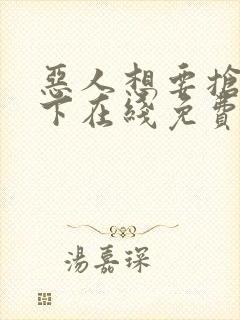 惡人想要搶
下在綫免費
湯嘉琛